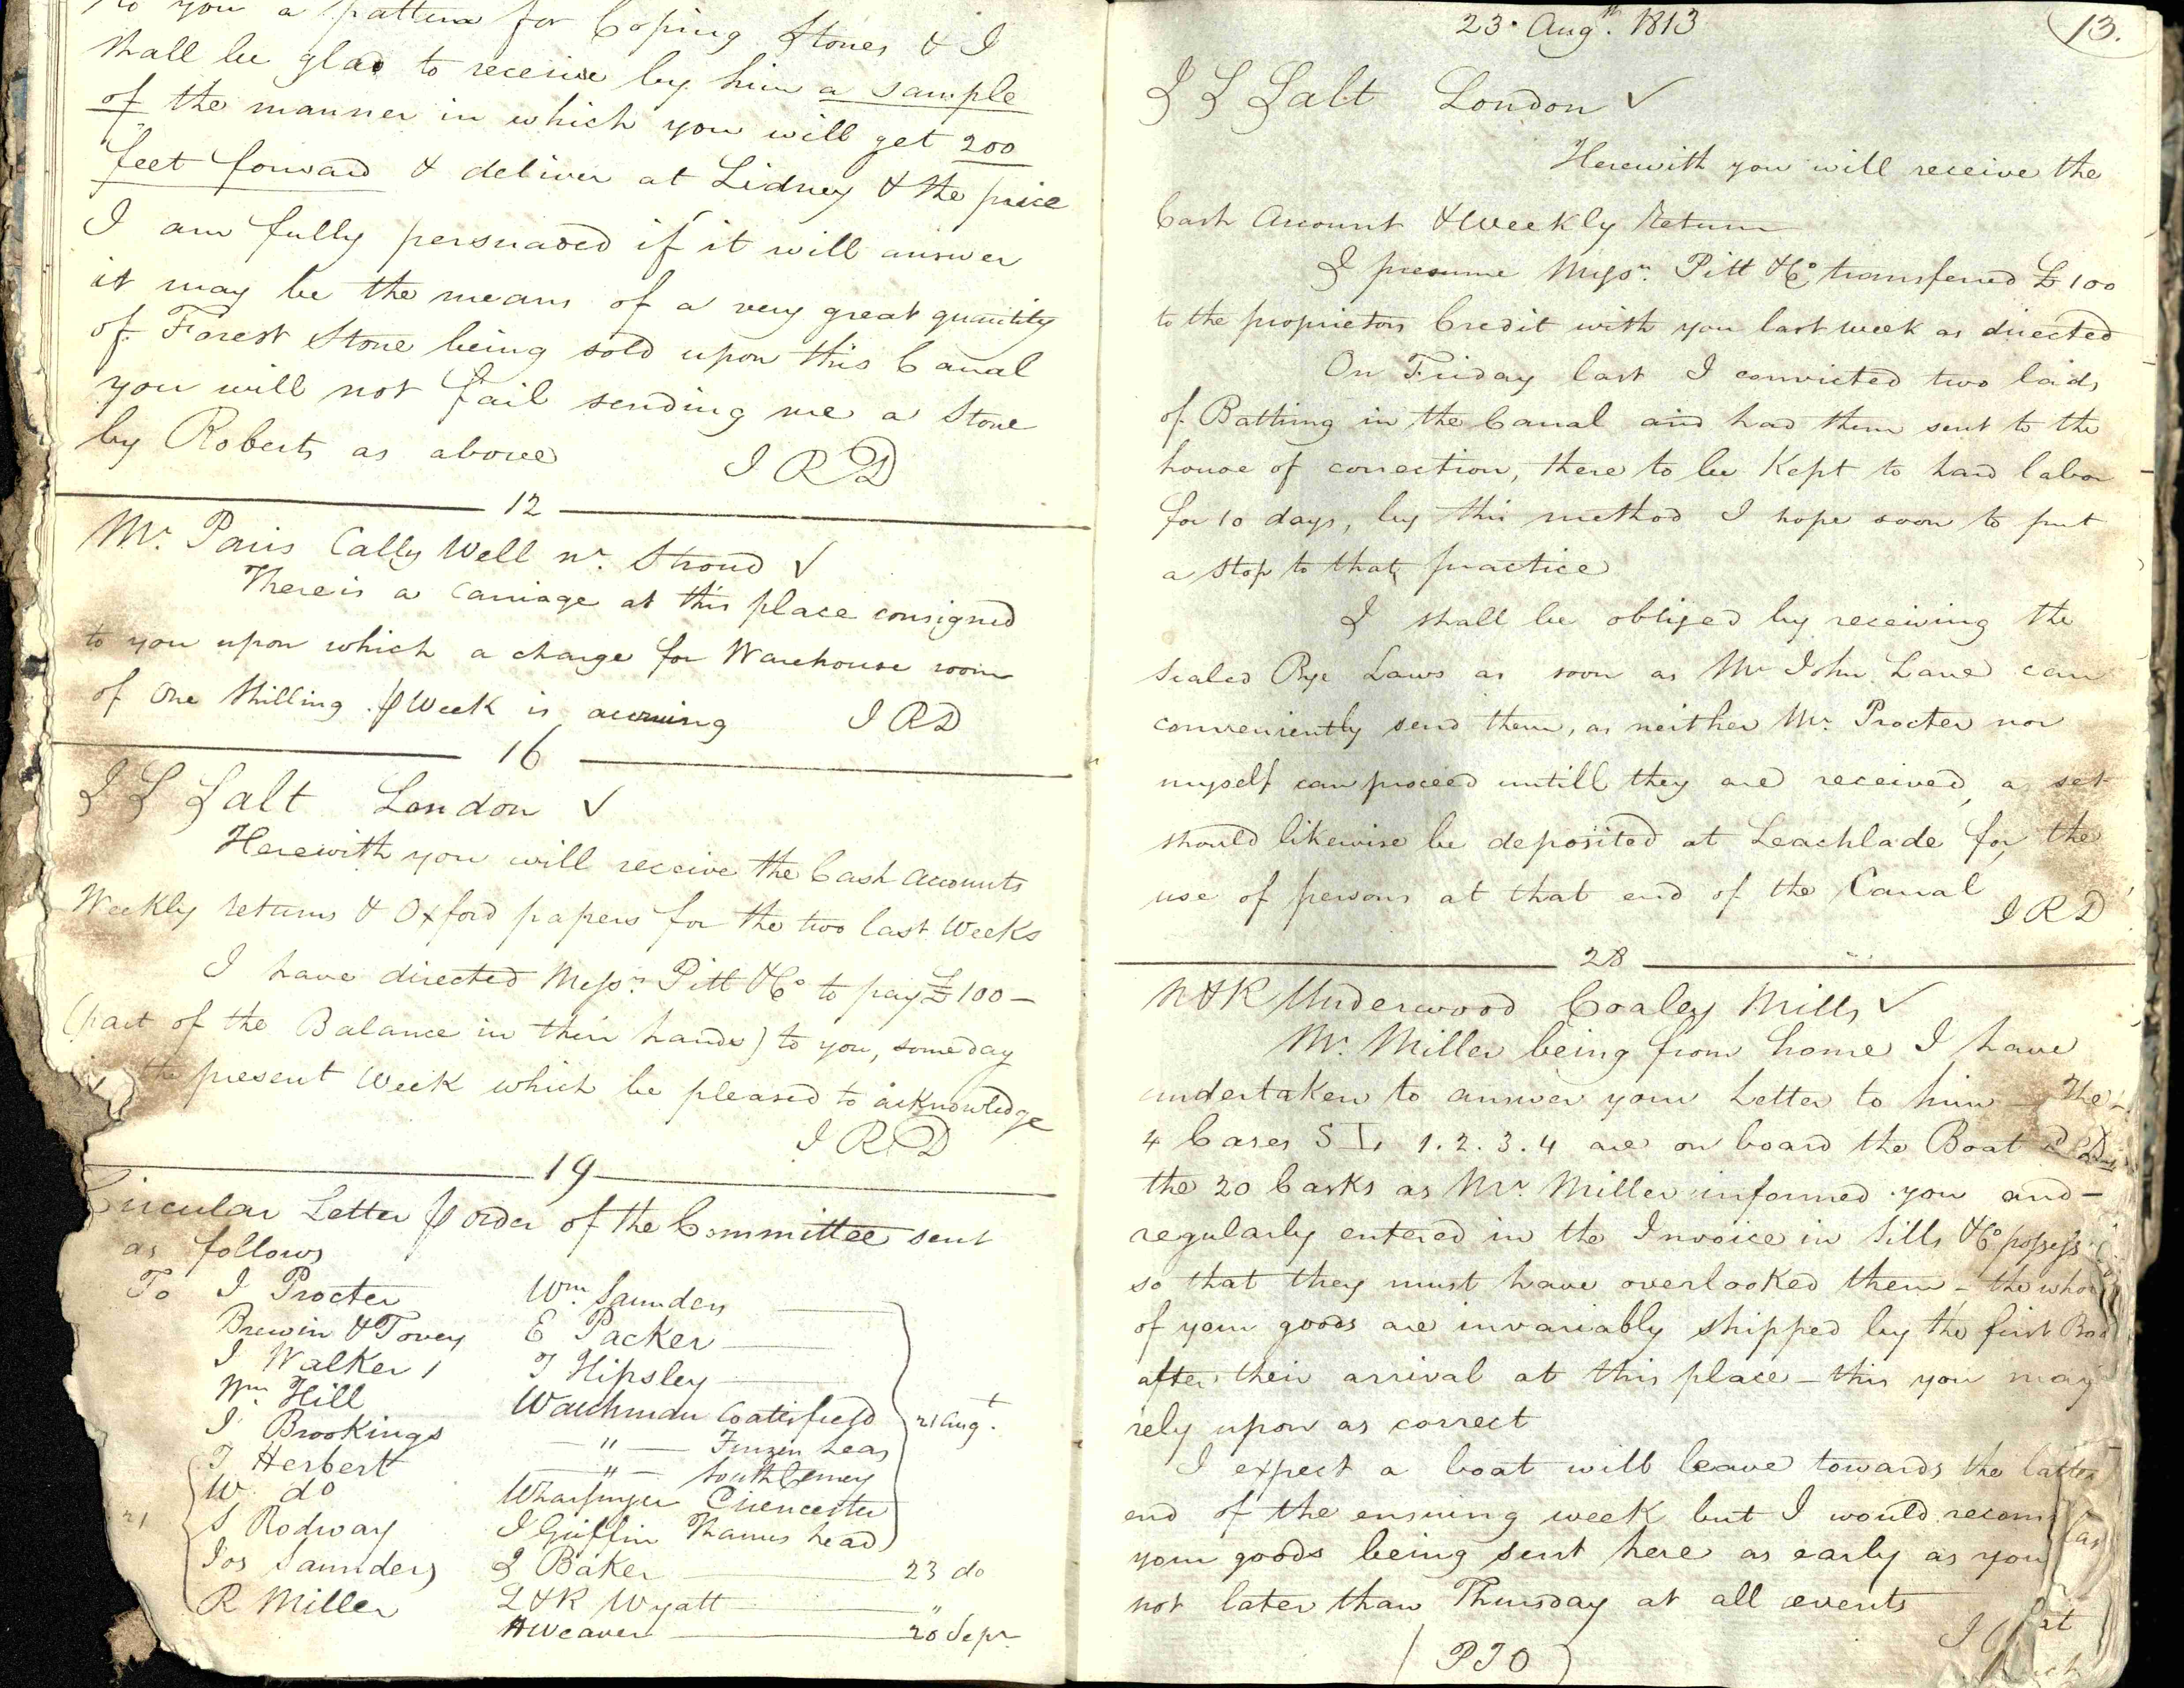 to you a pattern for Coping Stones & I
shall be glad to receive by him a sample
of the manner in which you will get 200
feet forward & deliver at Lidney & the price
I am fully persuaded if it will answer
it may be the means of a very great quantity
of Forest Stone being sold upon this Canal
you will not fail sending me a Stone
by Roberts as above I R D
12
Mr. Paris Cally Well nr. Stroud ✓
There is a Carriage at this place consigned
to you upon which a charge for Warehouse room
of One Shilling ⅌ Week is accruing I R D
16
I L Salt London ✓
Herewith you will receive the Cash Accounts
Weekly returns & Oxford papers for the two last Weeks
I have directed Messrs. Pitt & Co to pay £100 –
(part of the Balance in their hands) to you, some day
the present Week which be pleased to acknowledge
I R D
19
Circular Letter ⅌ order of the Committee sent
as follows
To I Procter Wm. Saunders
Brewin & Tovey E Packer
I Walker T Hipsley
Wm. Hill Watchman Coatesfield 21 Aug.t
I Brookings – " – Furzen Leas
T Herbert – " – South Cerney
W do Wharfinger Cirencester
21 S Rodway I Griffin Thames head
Jos Saunders I Baker 23 do
R Miller L & R Wyatt "
H Weaver 20 Sepr.
23. Augth. 1813 13.
I L Salt London ✓
Herewith you will receive the
Cash Account & Weekly Return
I presume Messrs. Pitt & Co transferred £100
to the proprietors Credit with you last week as directed
On Friday last I convicted two lads
of Bathing in the Canal and had them sent to the
house of correction, there to be Kept to hard labor
for 10 days, by this method I hope soon to put
a stop to that practice
I shall be obliged by receiving the
Sealed Bye Laws as soon as Mr John Lane can
conveniently send them, as neither Mr. Procter nor
myself can proceed untill they are received, a set
should likewise be deposited at Leachlade for the
use of persons at that end of the Canal
I R D
28
N & K Underwood Coaley Mills ✓
Mr. Miller being from home I have
undertaken to answer your Letter to him – The –
4 Cases S I, 1.2.3.4 are on board the Boat
the 20 Casks as Mr. Miller informed you and –
regularly entered in the Invoice in Sills & Co possess
so that they must have overlooked them – the who
of your goods are invariably shipped by the first Boa
after their arrival at this place – this you may
rely upon as correct
I expect a boat will leave towards the latter
end of the ensuing week but I would recom
your goods being sent here as early as you
not later than Thursday at all events
(PTO)